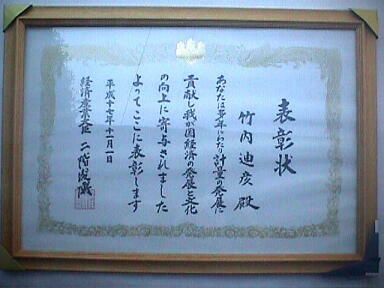 表彰状
竹内迪彦殿
あなたは多年にわたり計量の発展に
貢献し我が国経済の発展と文化
の向上に寄与されました
よってここに表彰します
平成十七年十一月一日
経済産業大臣 二階俊博